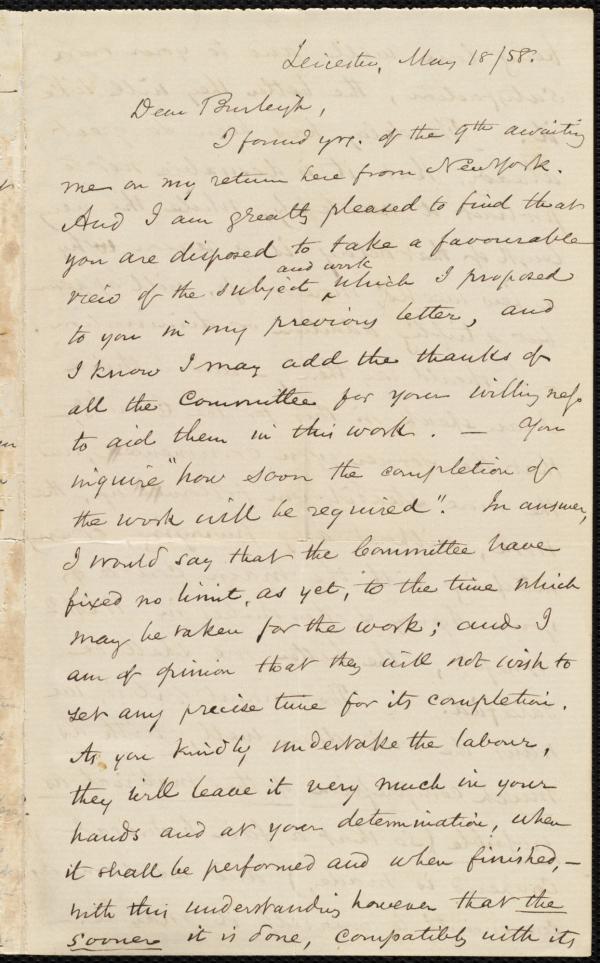 Leicester, May 18/58.
Dear Burleigh,
I found yrs. of the 9th awaiting
me on my return here from New York.
And I am greatly pleased to find that
you are disposed to take a favourable
and work
view of the subject ‸ which I proposed
to you in my previous letter, and
I know I may add the thanks of
all the Committee for your willingness
to aid them in this work. — You
inquire "how soon the completion of
the work will be required". In answer,
I would say that the Committee have
fixed no limit, as yet, to the time which
may be taken for the work; and I
am of opinion that they will not wish to
set any precise time for its completion.
As you kindly undertake the labour,
they will leave it very much in your
hands and at your determination, when
it shall be performed and when finished, –
with this understanding however that the
sooner it is done, compatibly with its